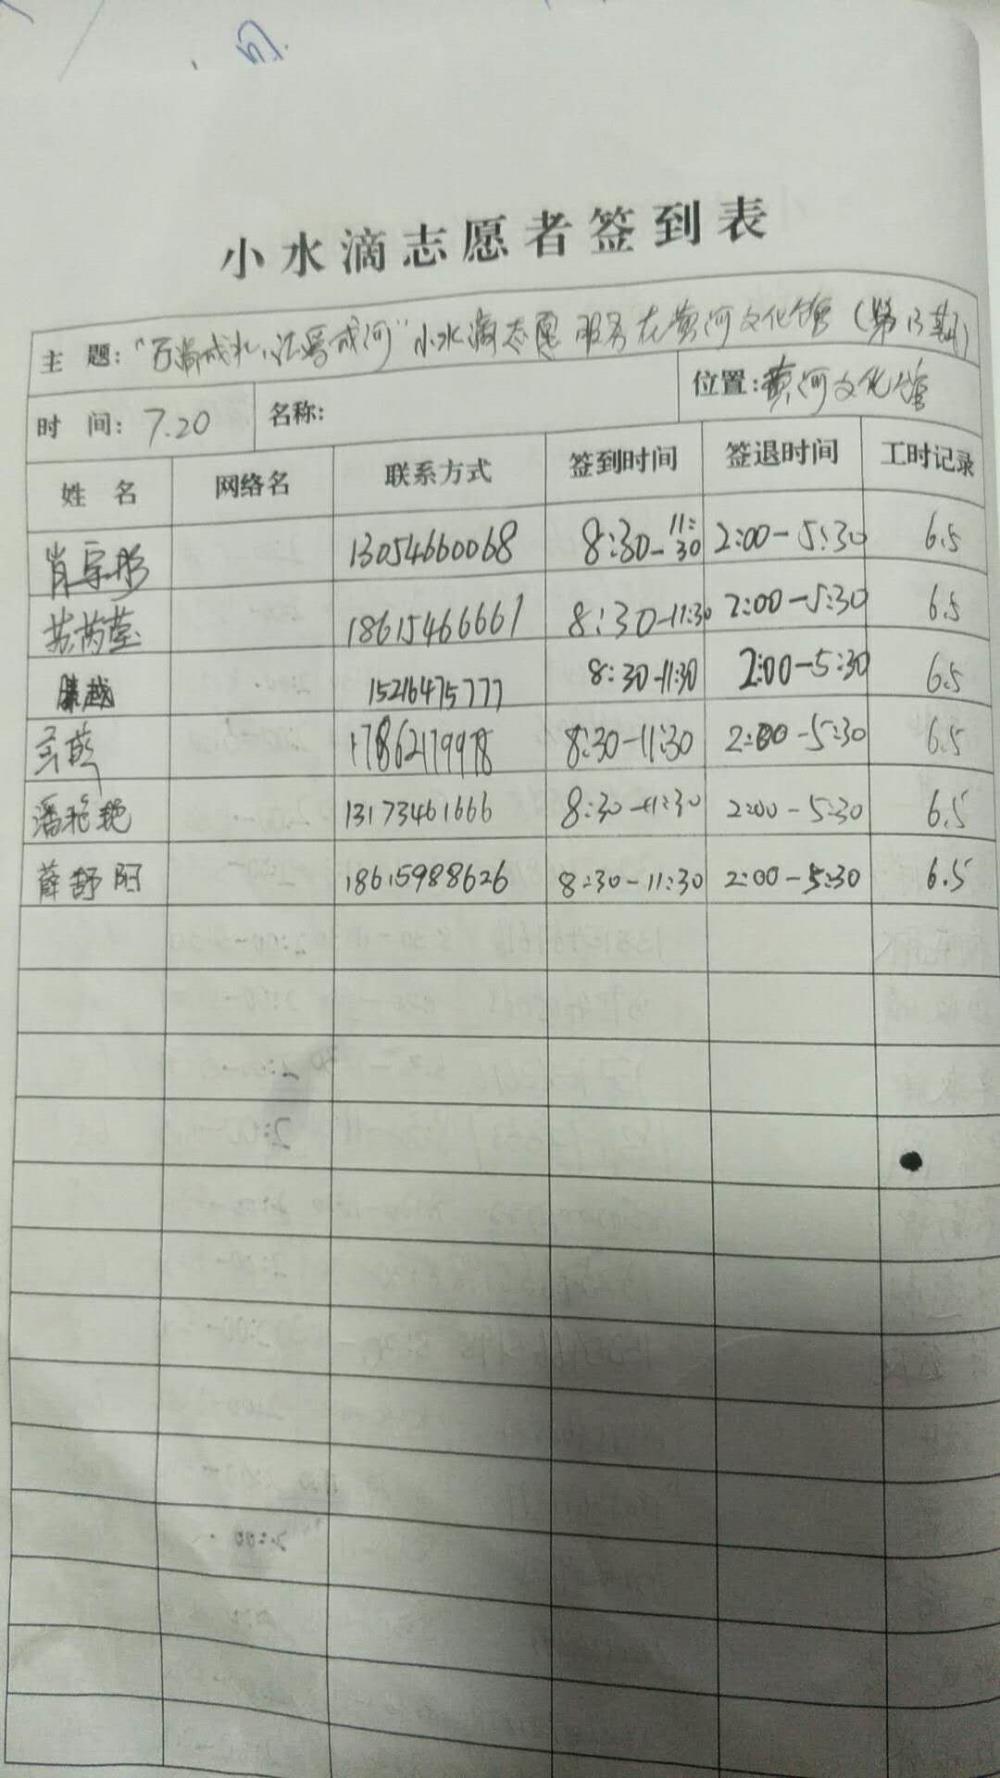 小水滴志愿者签到表
主 题: "百滴成水,汇曷成河"小水滴志愿服务在黄河文化馆(第13期)
时 间: 7.20 名称: 位置: 黄河文化馆
姓 名 网络名 联系方式 签到时间 签退时间 工时记录
肖宗彤 13054660068 8:30-11:30 2:00-5:30 6.5
苏芮莹 18615466661 8:30-11:30 2:00-5:30 6.5
滕越 15216475777 8:30-11:30 2:00-5:30 6.5
17862179978 8:30-11:30 2:00-5:30 6.5
潘艳艳 13173461666 8:30-11:30 2:00-5:30 6.5
薛舒阳 18615988626 8:30-11:30 2:00-5:30 6.5